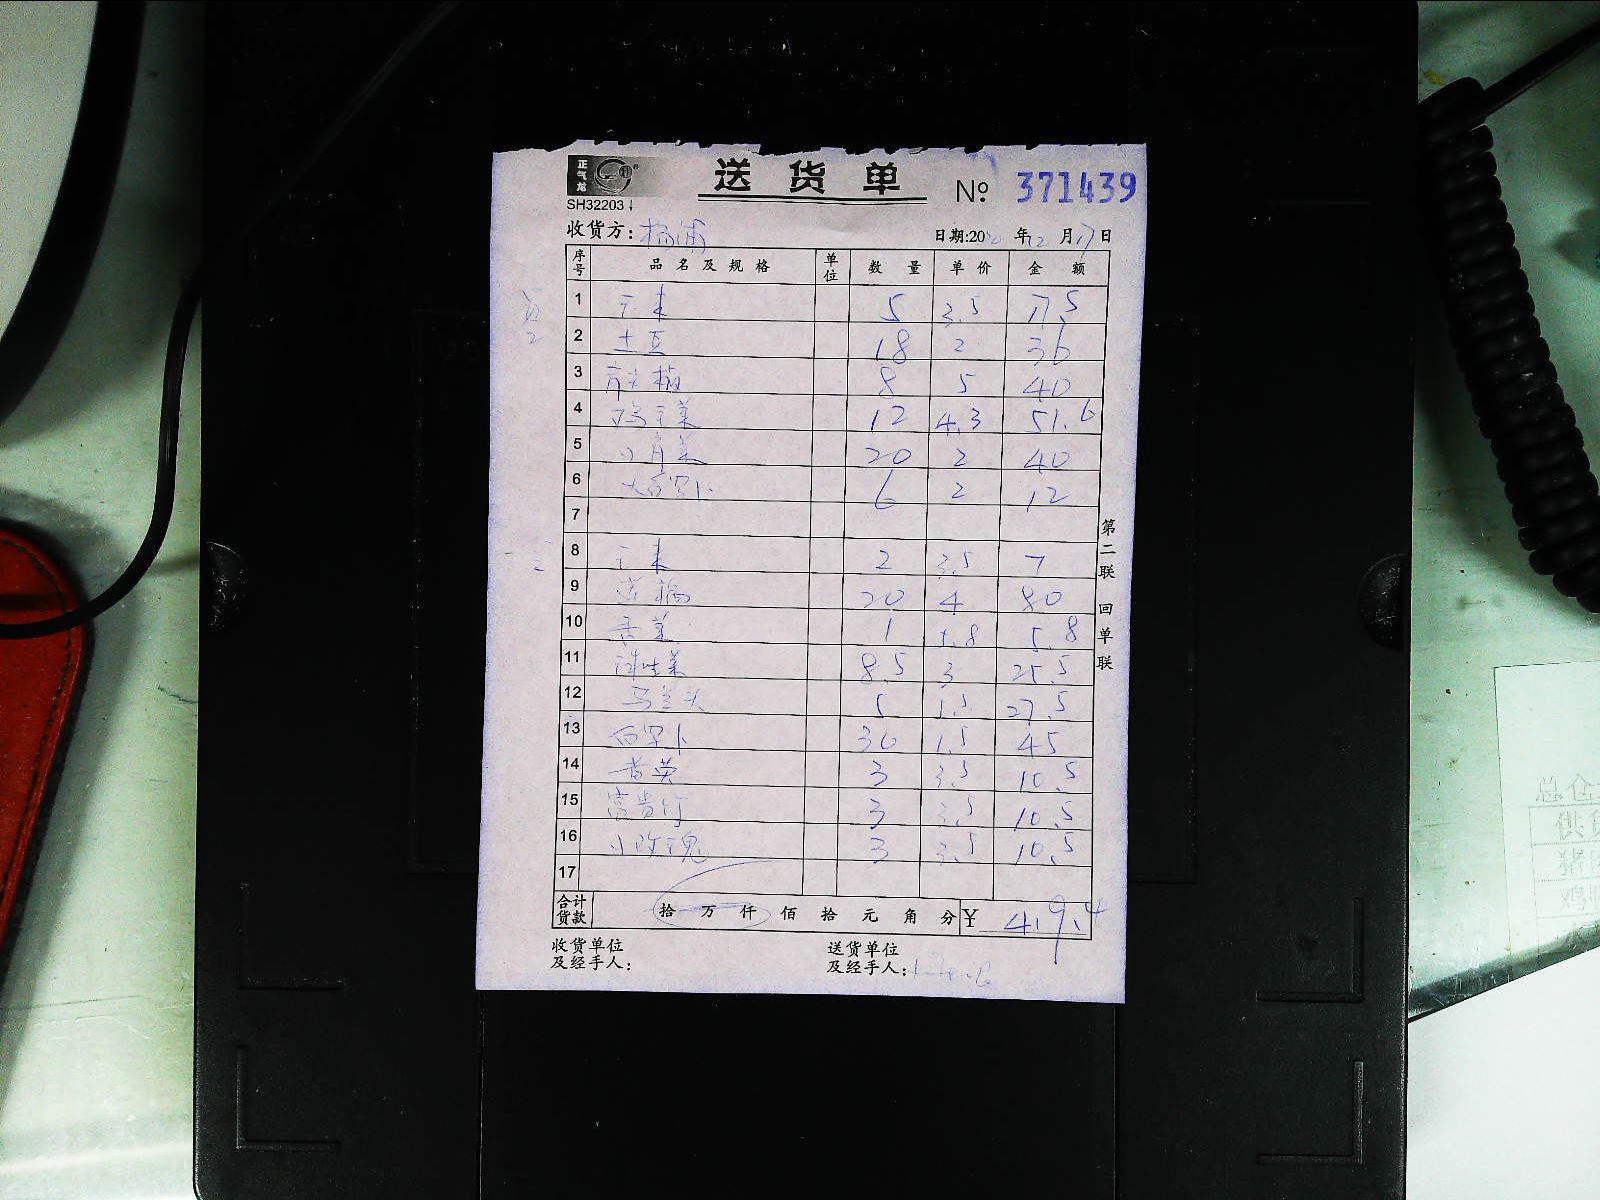 正气龙
送货单 № 371439
SH32203
收货方：杨浦 日期:20 年12月17日
序号 品名及规格 单位 数量 单价 金额
1 玉米 5 3.5 17.5
2 土豆 18 2 36
3 8 5 40
4 鸡毛菜 12 4.3 51.6
5 小青菜 20 2 40
6 大白萝卜 6 2 12
7
8 玉米 2 3.5 7
9 20 4 80
10 香菜 1 5.8 5.8
11 球生菜 8.5 3 25.5
12 马兰头 5 5.5 27.5
13 白萝卜 30 1.5 45
14 3 3.5 10.5
15 富贵竹 3 3.5 10.5
16 小玫瑰 3 3.5 10.5
17
合计货款 拾万仟佰拾元角分 ￥ 419.4
收货单位及经手人： 送货单位及经手人：
第二联 回单联
总仓
供货